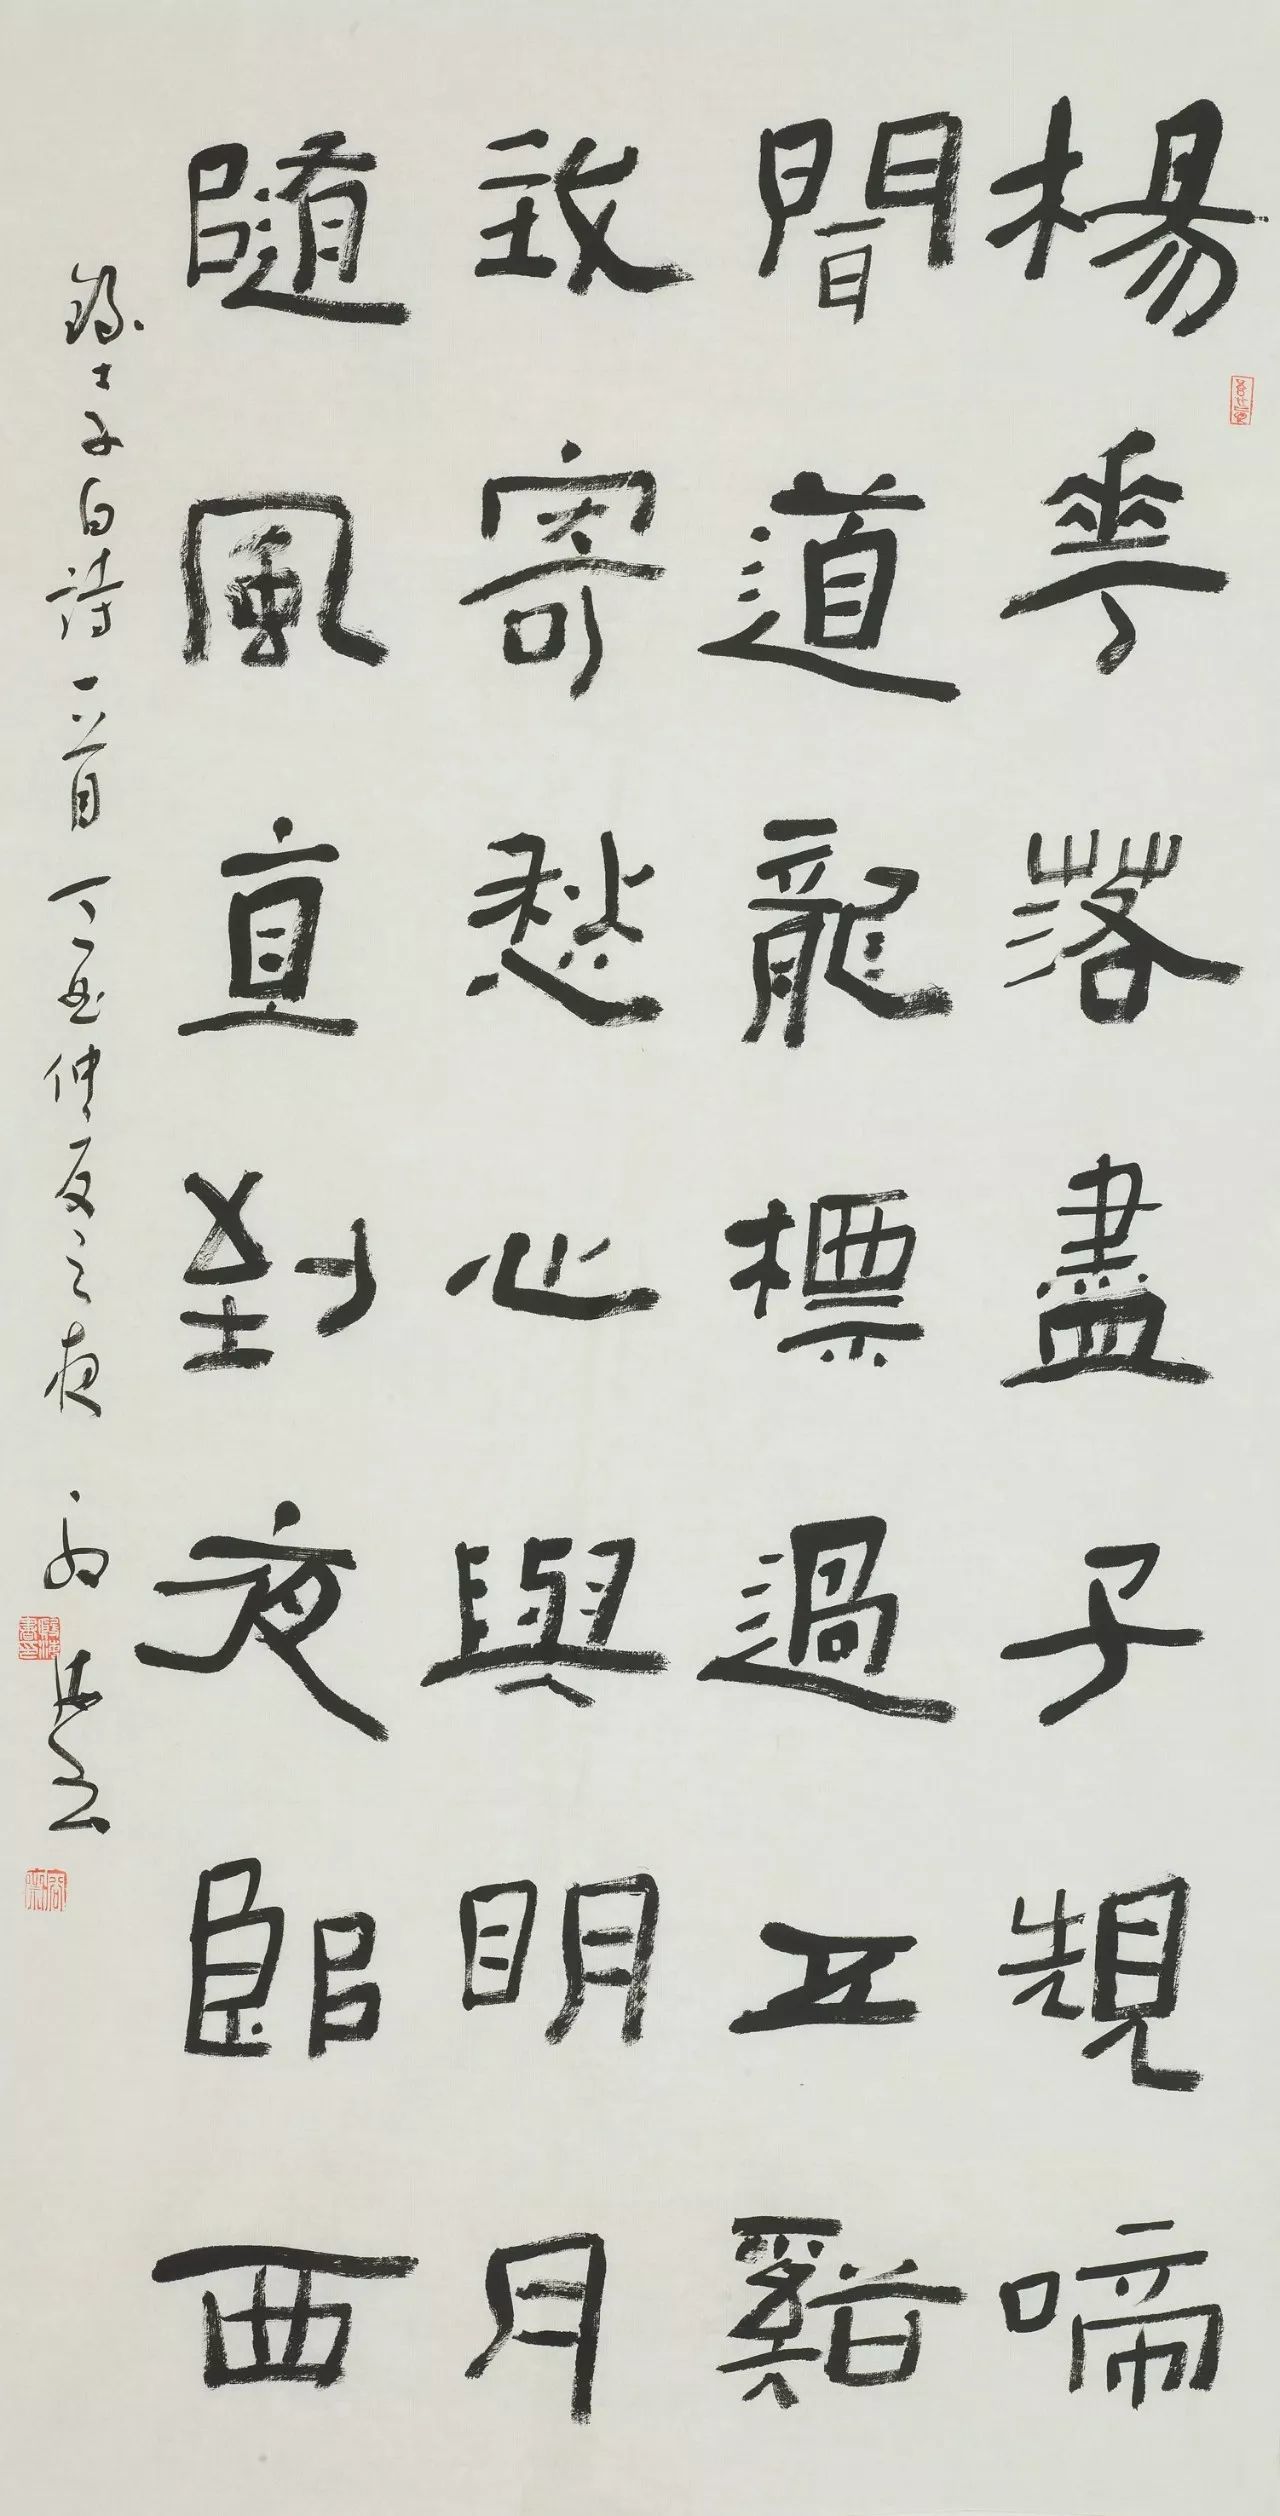 楊華落盡子規啼
聞道龍標過五谿
我寄愁心與明月
隨風直到夜郎西
錄李白詩一首 丁酉仲夏之夜